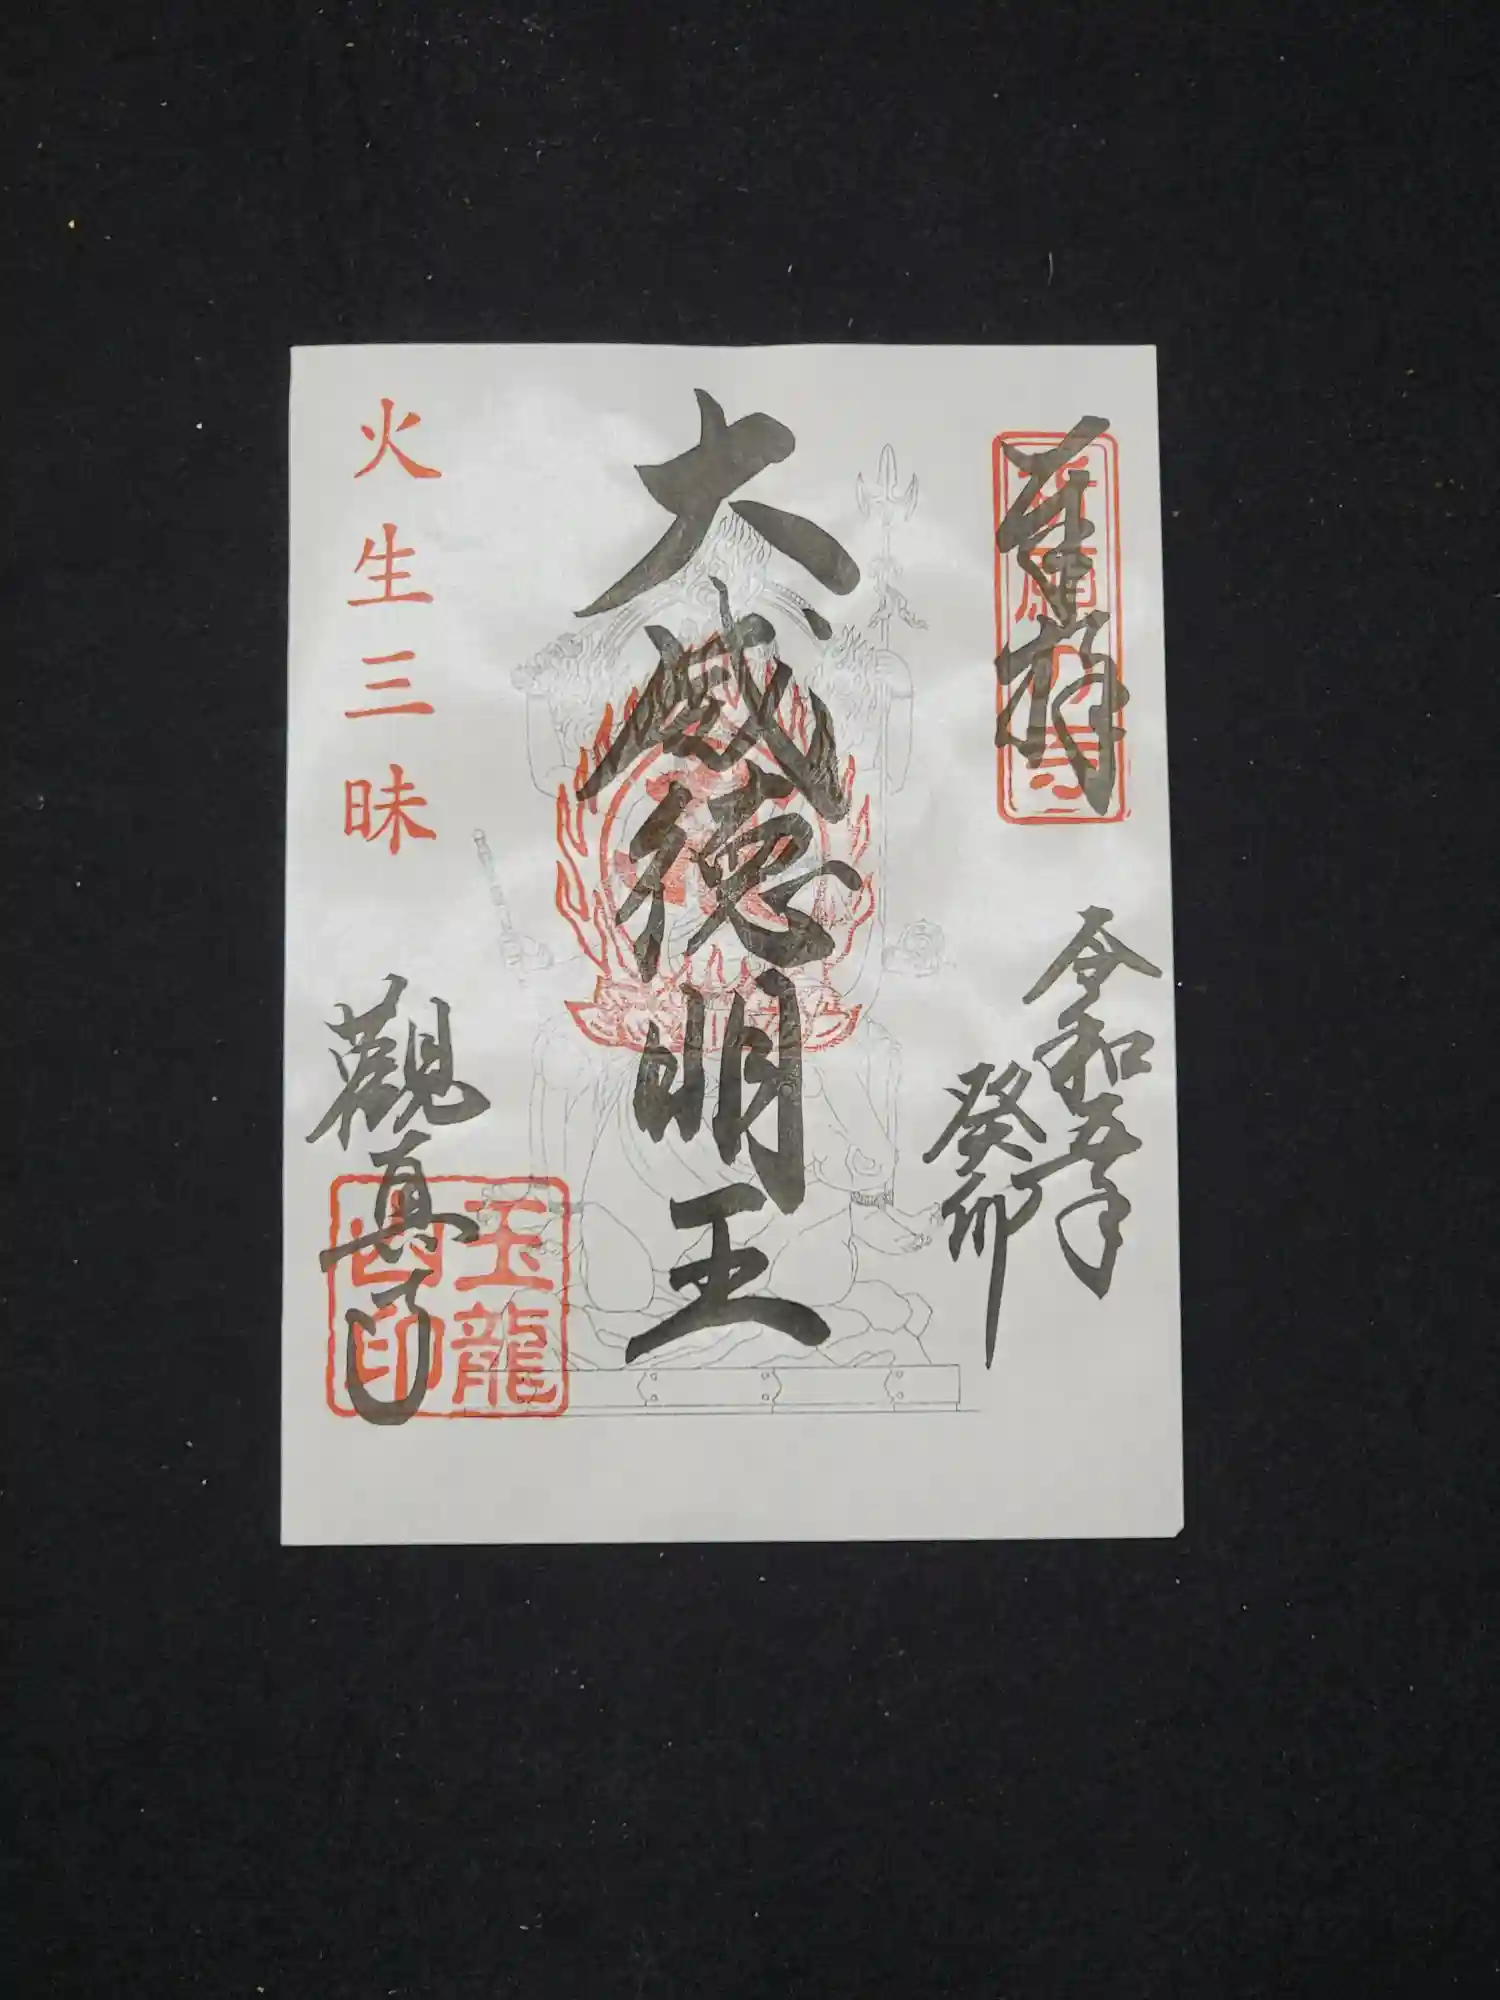 奉拝
令和五年
癸卯
大威徳明王
火生三昧
觀真寺
玉龍